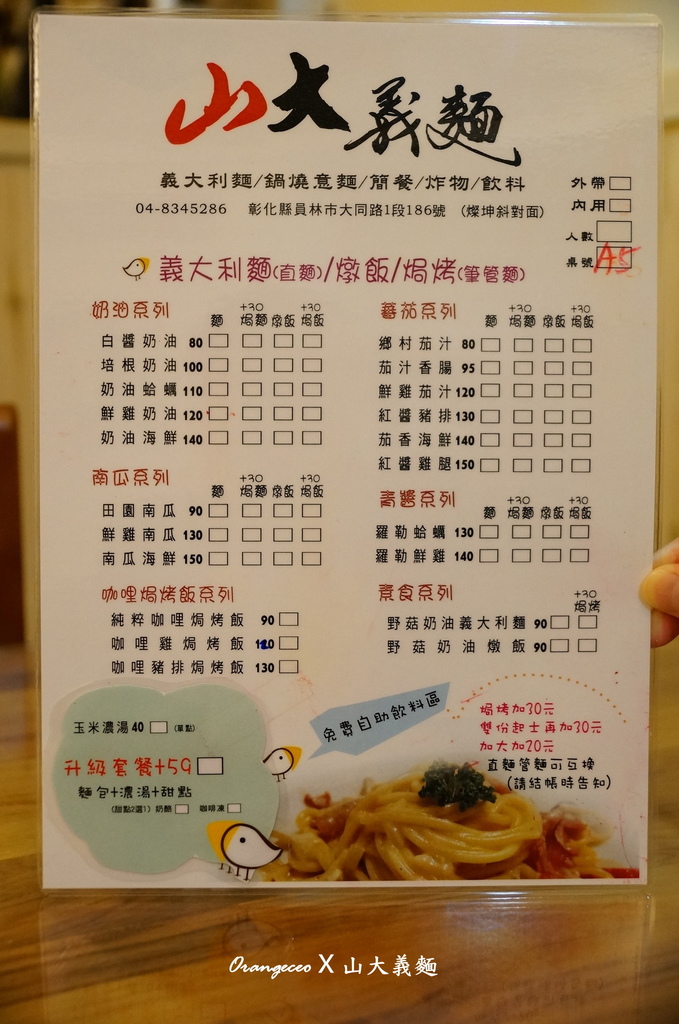 山大義麵
義大利麵/鍋燒意麵/簡餐/炸物/飲料
04-8345286 彰化縣員林市大同路1段186號 (燦坤斜對面)
外帶
內用
人數
桌號 A5
義大利麵(直麵)/燉飯/焗烤(筆管麵)
奶油系列
麵 +30焗麵 燉飯 +30焗飯
白醬奶油 80
培根奶油 100
奶油蛤蠣 110
鮮雞奶油 120
奶油海鮮 140
南瓜系列
麵 +30焗麵 燉飯 +30焗飯
田園南瓜 90
鮮雞南瓜 130
南瓜海鮮 150
咖哩焗烤飯系列
純粹咖哩焗烤飯 90
咖哩雞焗烤飯
咖哩豬排焗烤飯 130
蕃茄系列
麵 +30焗麵 燉飯 +30焗飯
鄉村茄汁 80
茄汁香腸 95
鮮雞茄汁 120
紅醬豬排 130
茄香海鮮 140
紅醬雞腿 150
青醬系列
麵 +30焗麵 燉飯 +30焗飯
羅勒蛤蠣 130
羅勒鮮雞 140
素食系列
+30焗烤
野菇奶油義大利麵 90
野菇奶油燉飯 90
玉米濃湯40 (單點)
升級套餐+59
麵包+濃湯+甜點
(甜點2選1) 奶酪 咖啡凍
免費自助飲料區
焗烤加30元
雙份起士再加30元
加大加20元
直麵管麵可互換
(請結帳時告知)
Orangeceo X 山大義麵